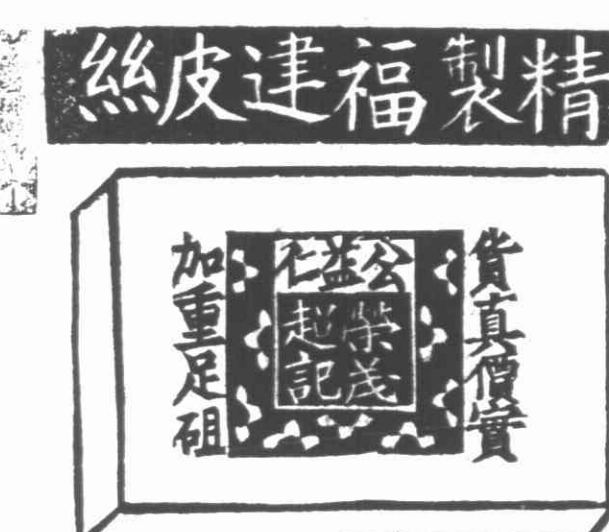 精製福建皮絲
貨真價實
公益仁
榮茂
超記
加重足砠